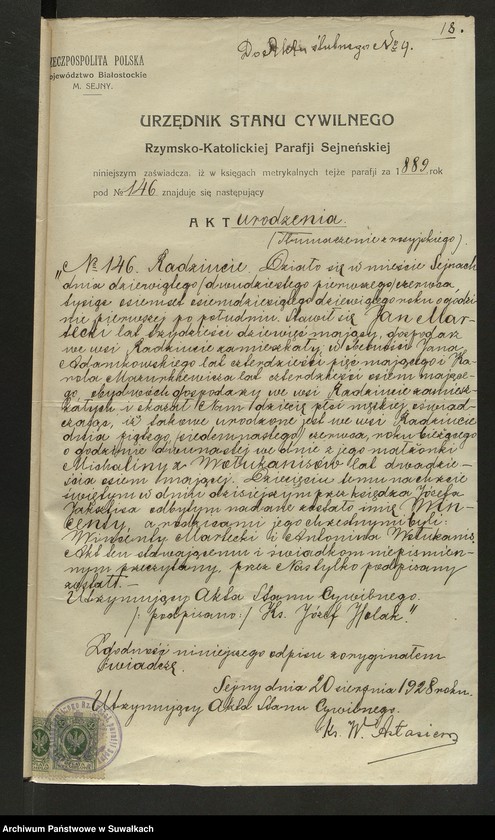 18.
Do Aktu ślubnego № 9.
RZECZPOSPOLITA POLSKA
Województwo Białostockie
M. SEJNY.
URZĘDNIK STANU CYWILNEGO
Rzymsko-Katolickiej Parafji Sejneńskiej
niniejszym zaświadcza, iż w księgach metrykalnych tejże parafji za 1889 rok
pod № 146 znajduje się następujący
AKT urodzenia.
(Tłumaczenie z rosyjskiego).
„№ 146. Radziucie. Działo się w mieście Sejnach
dnia dziewiątego/dwudziestego pierwszego/czerwca
tysiąc osiemset osiemdziesiątego dziewiątego roku o godzi-
nie pierwszej po południu. Stawił się Jan Mar-
lecki lat trzydzieści dziewięć mający, gospodarz
we wsi Radziucie zamieszkały, w obecności Jana
Adamkowskiego lat czterdzieści pięć mającego i Ka-
rola Mazurkiewicza lat czterdzieści osiem mające-
go, obydwóch gospodarzy we wsi Radziucie zamiesz-
kałych i okazał Nam dziecię płci męskiej oświad-
czając, iż takowe urodzone jest we wsi Radziucie
dnia piątego/siedemnastego czerwca, roku bieżącego
o godzinie dwunastej we dnie z jego małżonki
Michaliny z Wołukanisów lat dwadzie-
ścia osiem mającej. Dziecięciu temu na chrzcie
świętym w dniu dzisiejszym przez księdza Józefa
odbytym nadane zostało imię Win-
centy, a rodzicami jego chrzestnymi byli:
Wincenty Marlecki i Antonina Wołukanis.
Akt ten stawającemu i świadkom niepiśmien-
nym przeczytany, przez Nas tylko podpisany
został.—
Utrzymujący Akta Stanu Cywilnego.
/: podpisano:/ Ks. Józef Holak."
Zgodność niniejszego odpisu z oryginałem
świadczę.
Sejny dnia 20 sierpnia 1928 roku.
Utrzymujący Akta Stanu Cywilnego.
Ks. W.
Archiwum Państwowe w Suwałkach